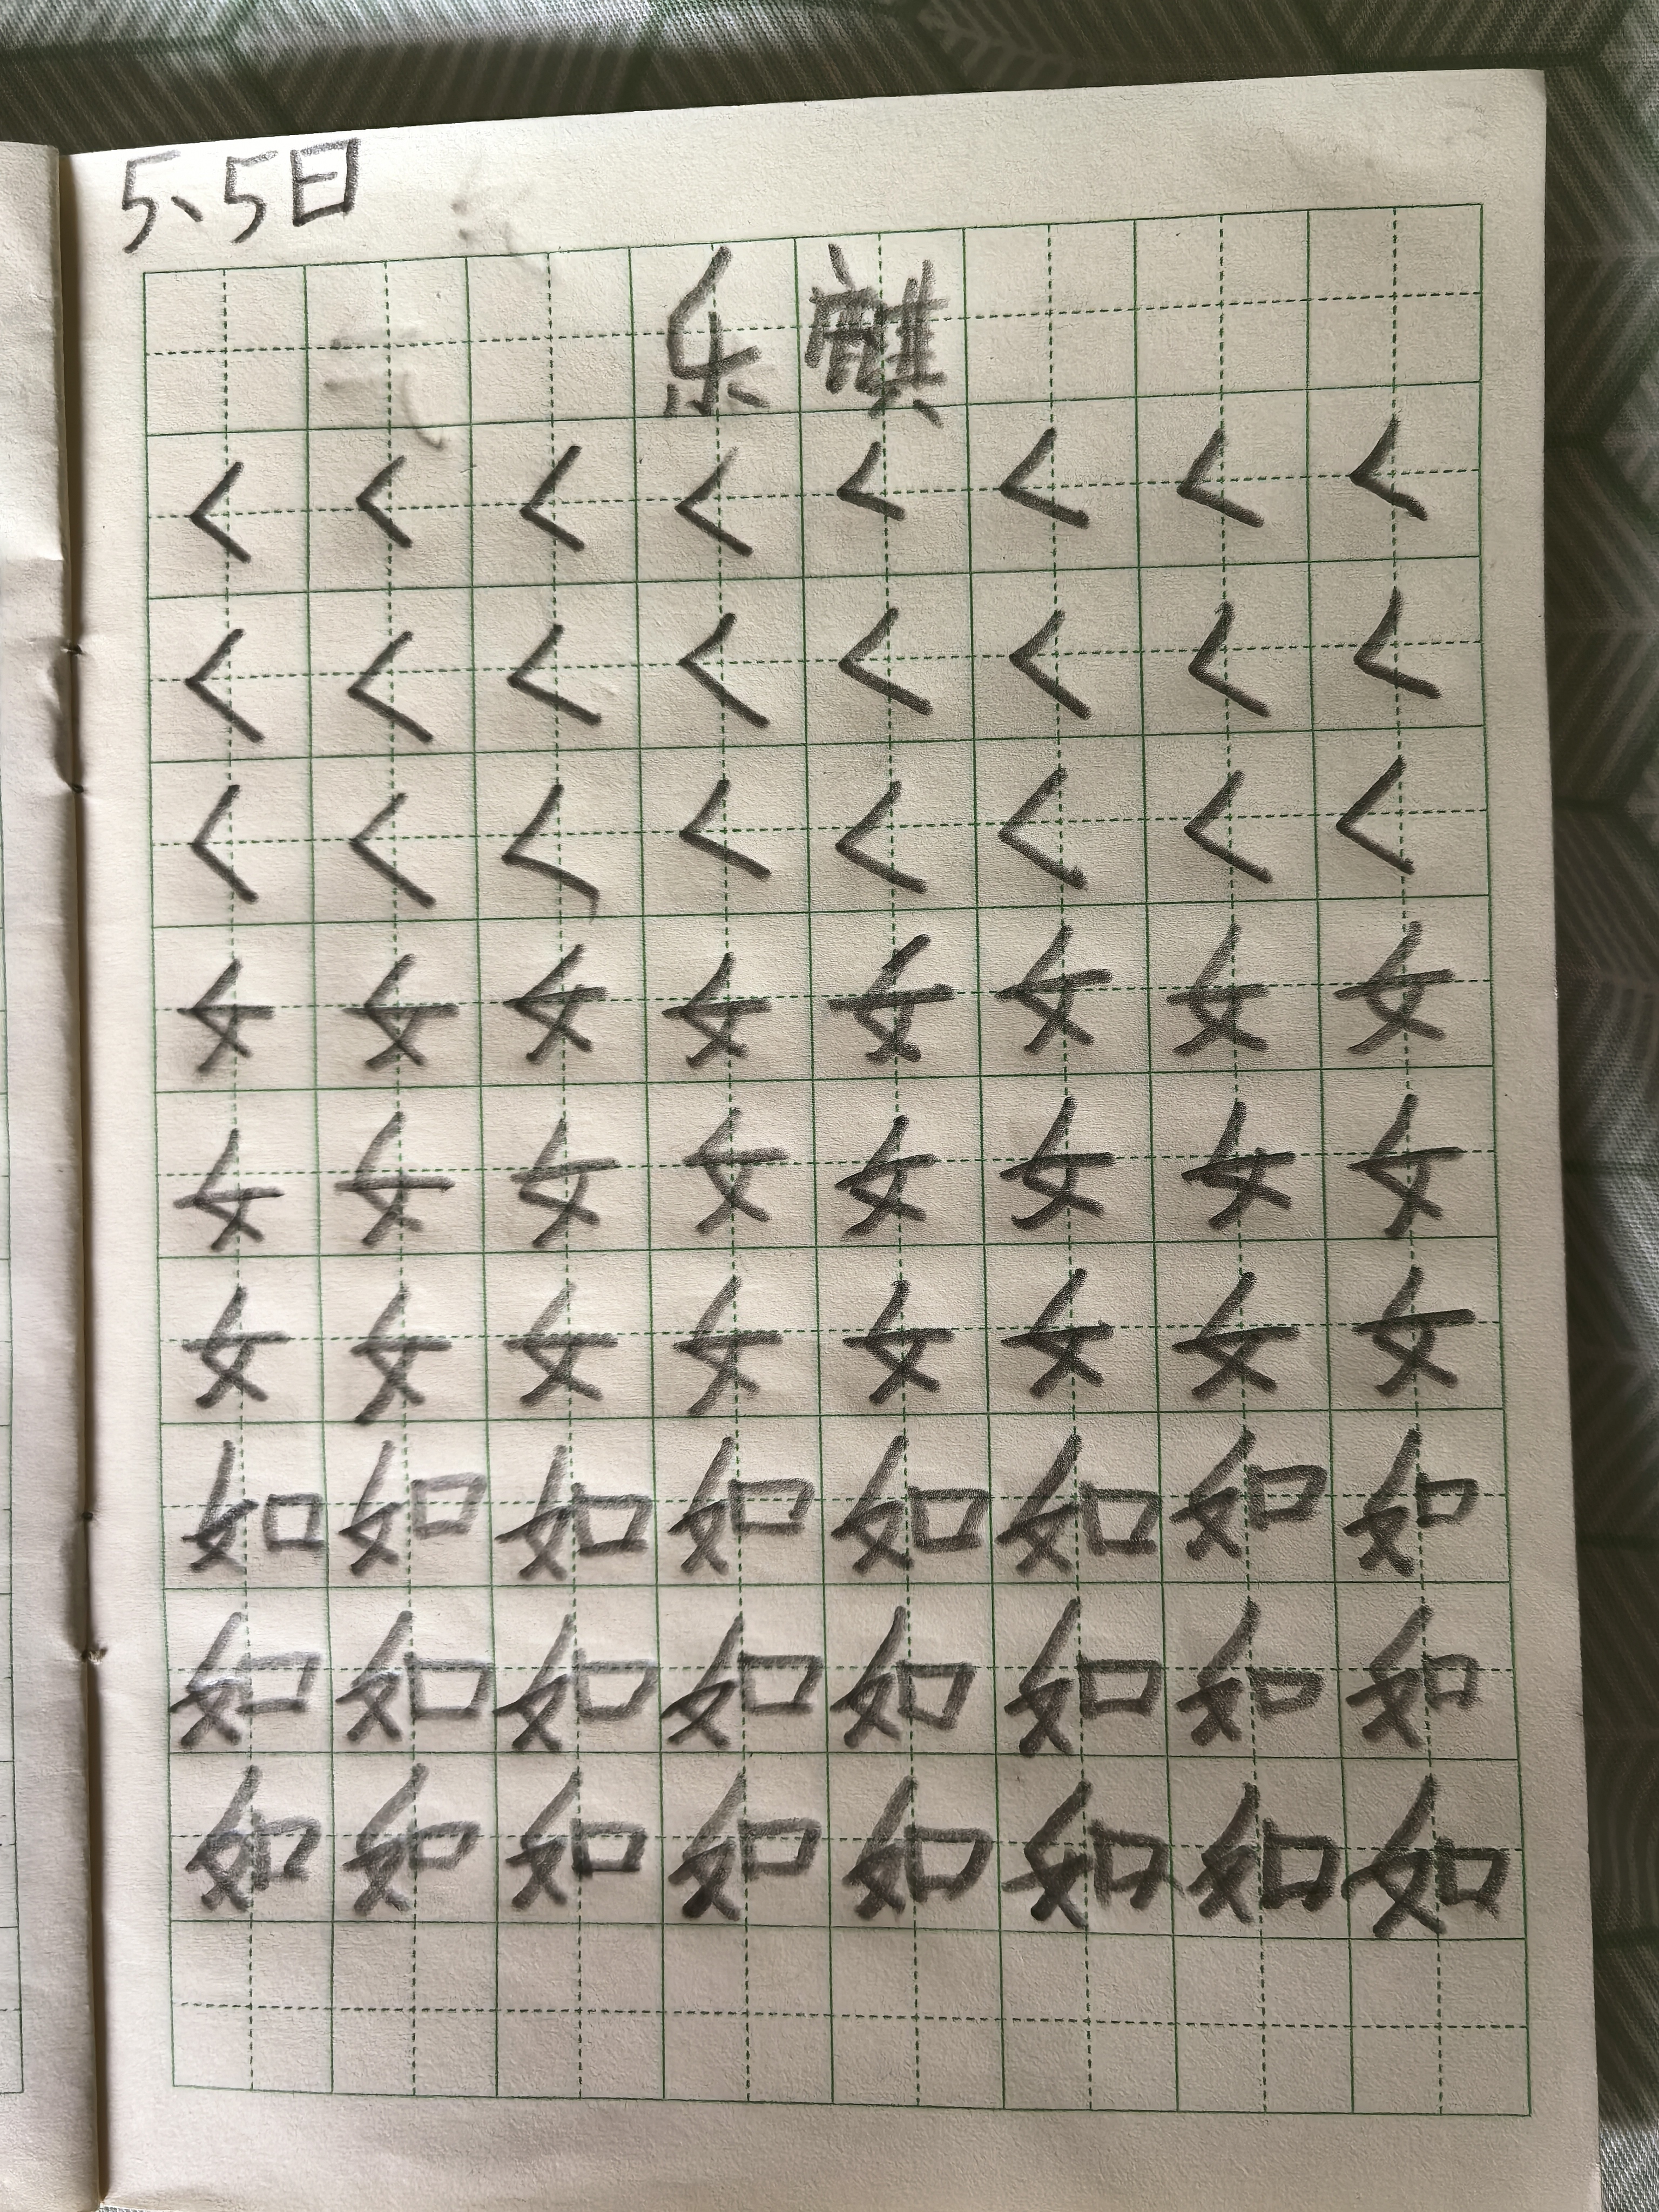 5、5日
乐麒
く く く く く く く く
く く く く く く く く
く く く く く く く く
女 女 女 女 女 女 女 女
女 女 女 女 女 女 女 女
女 女 女 女 女 女 女 女
如 如 如 如 如 如 如 如
如 如 如 如 如 如 如 如
如 如 如 如 如 如 如 如